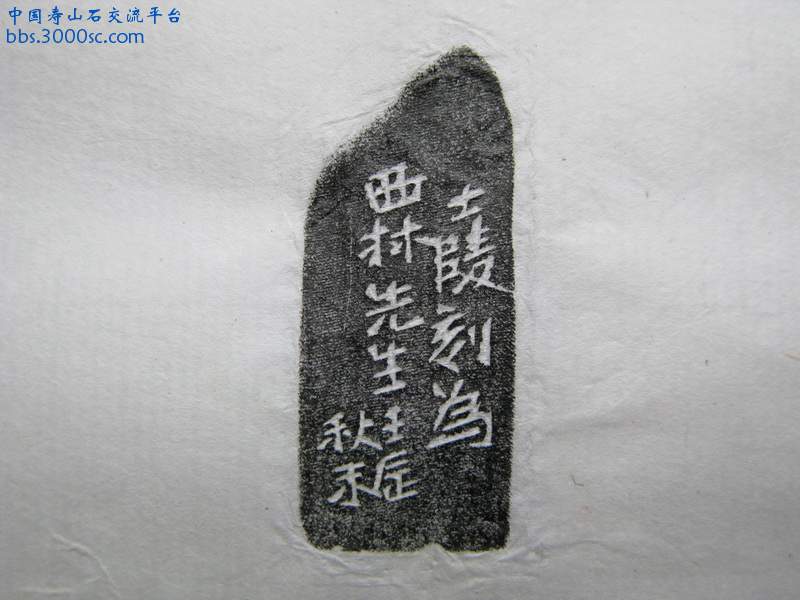 中国寿山石交流平台
bbs.3000sc.com
士陵刻為
西林先生壬辰
秋末